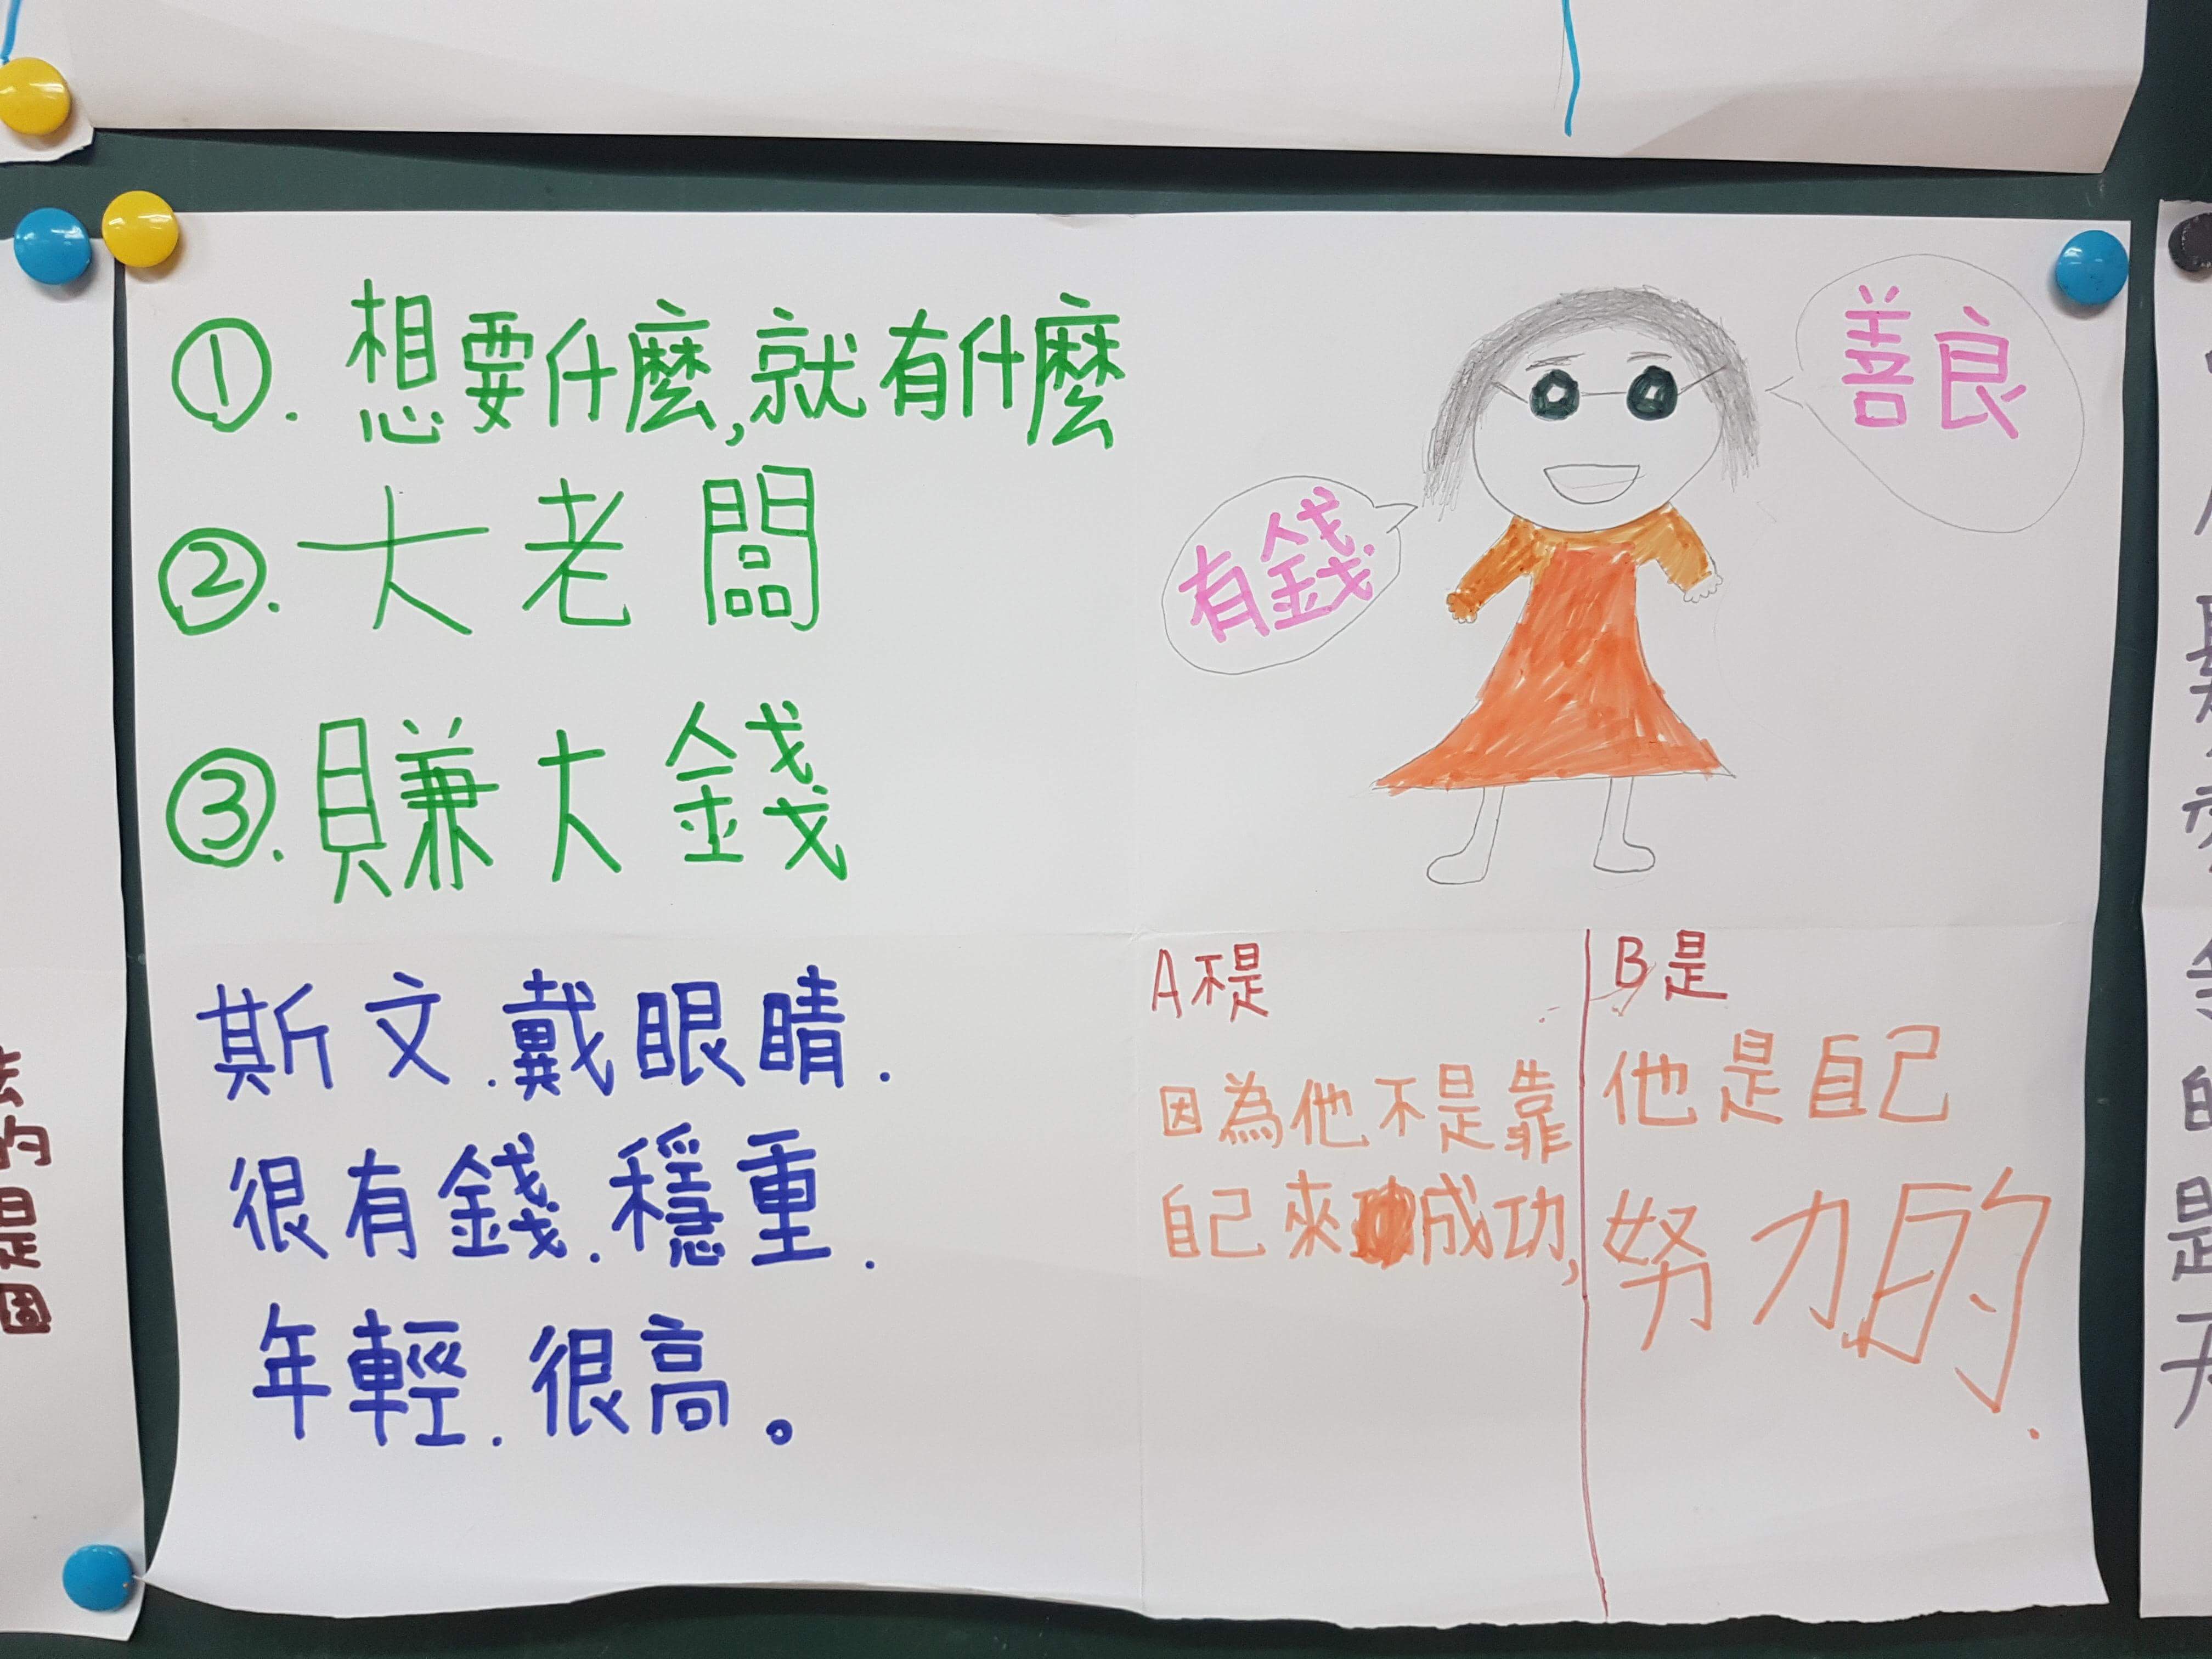 ①. 想要什麼,就有什麼
②. 大老闆
③. 賺大錢
善良
有錢
斯文.戴眼睛.
很有錢.穩重.
年輕.很高。
A不是
因為他不是靠
自己來成功,
B是
他是自己
努力的.
的
是
因
的
是